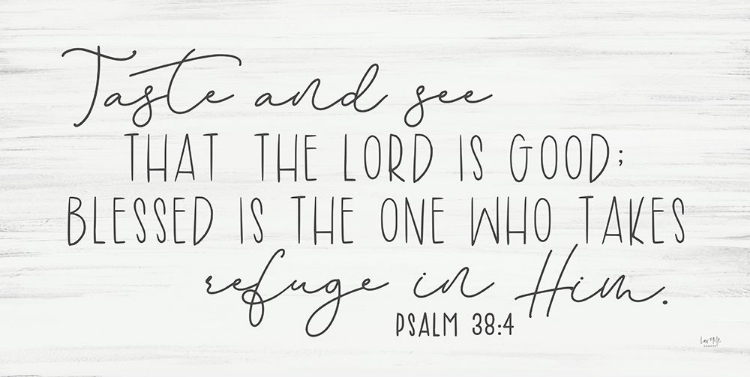 Taste and see
THAT THE LORD IS GOOD;
BLESSED IS THE ONE WHO TAKES
refuge in Him.
PSALM 38:4